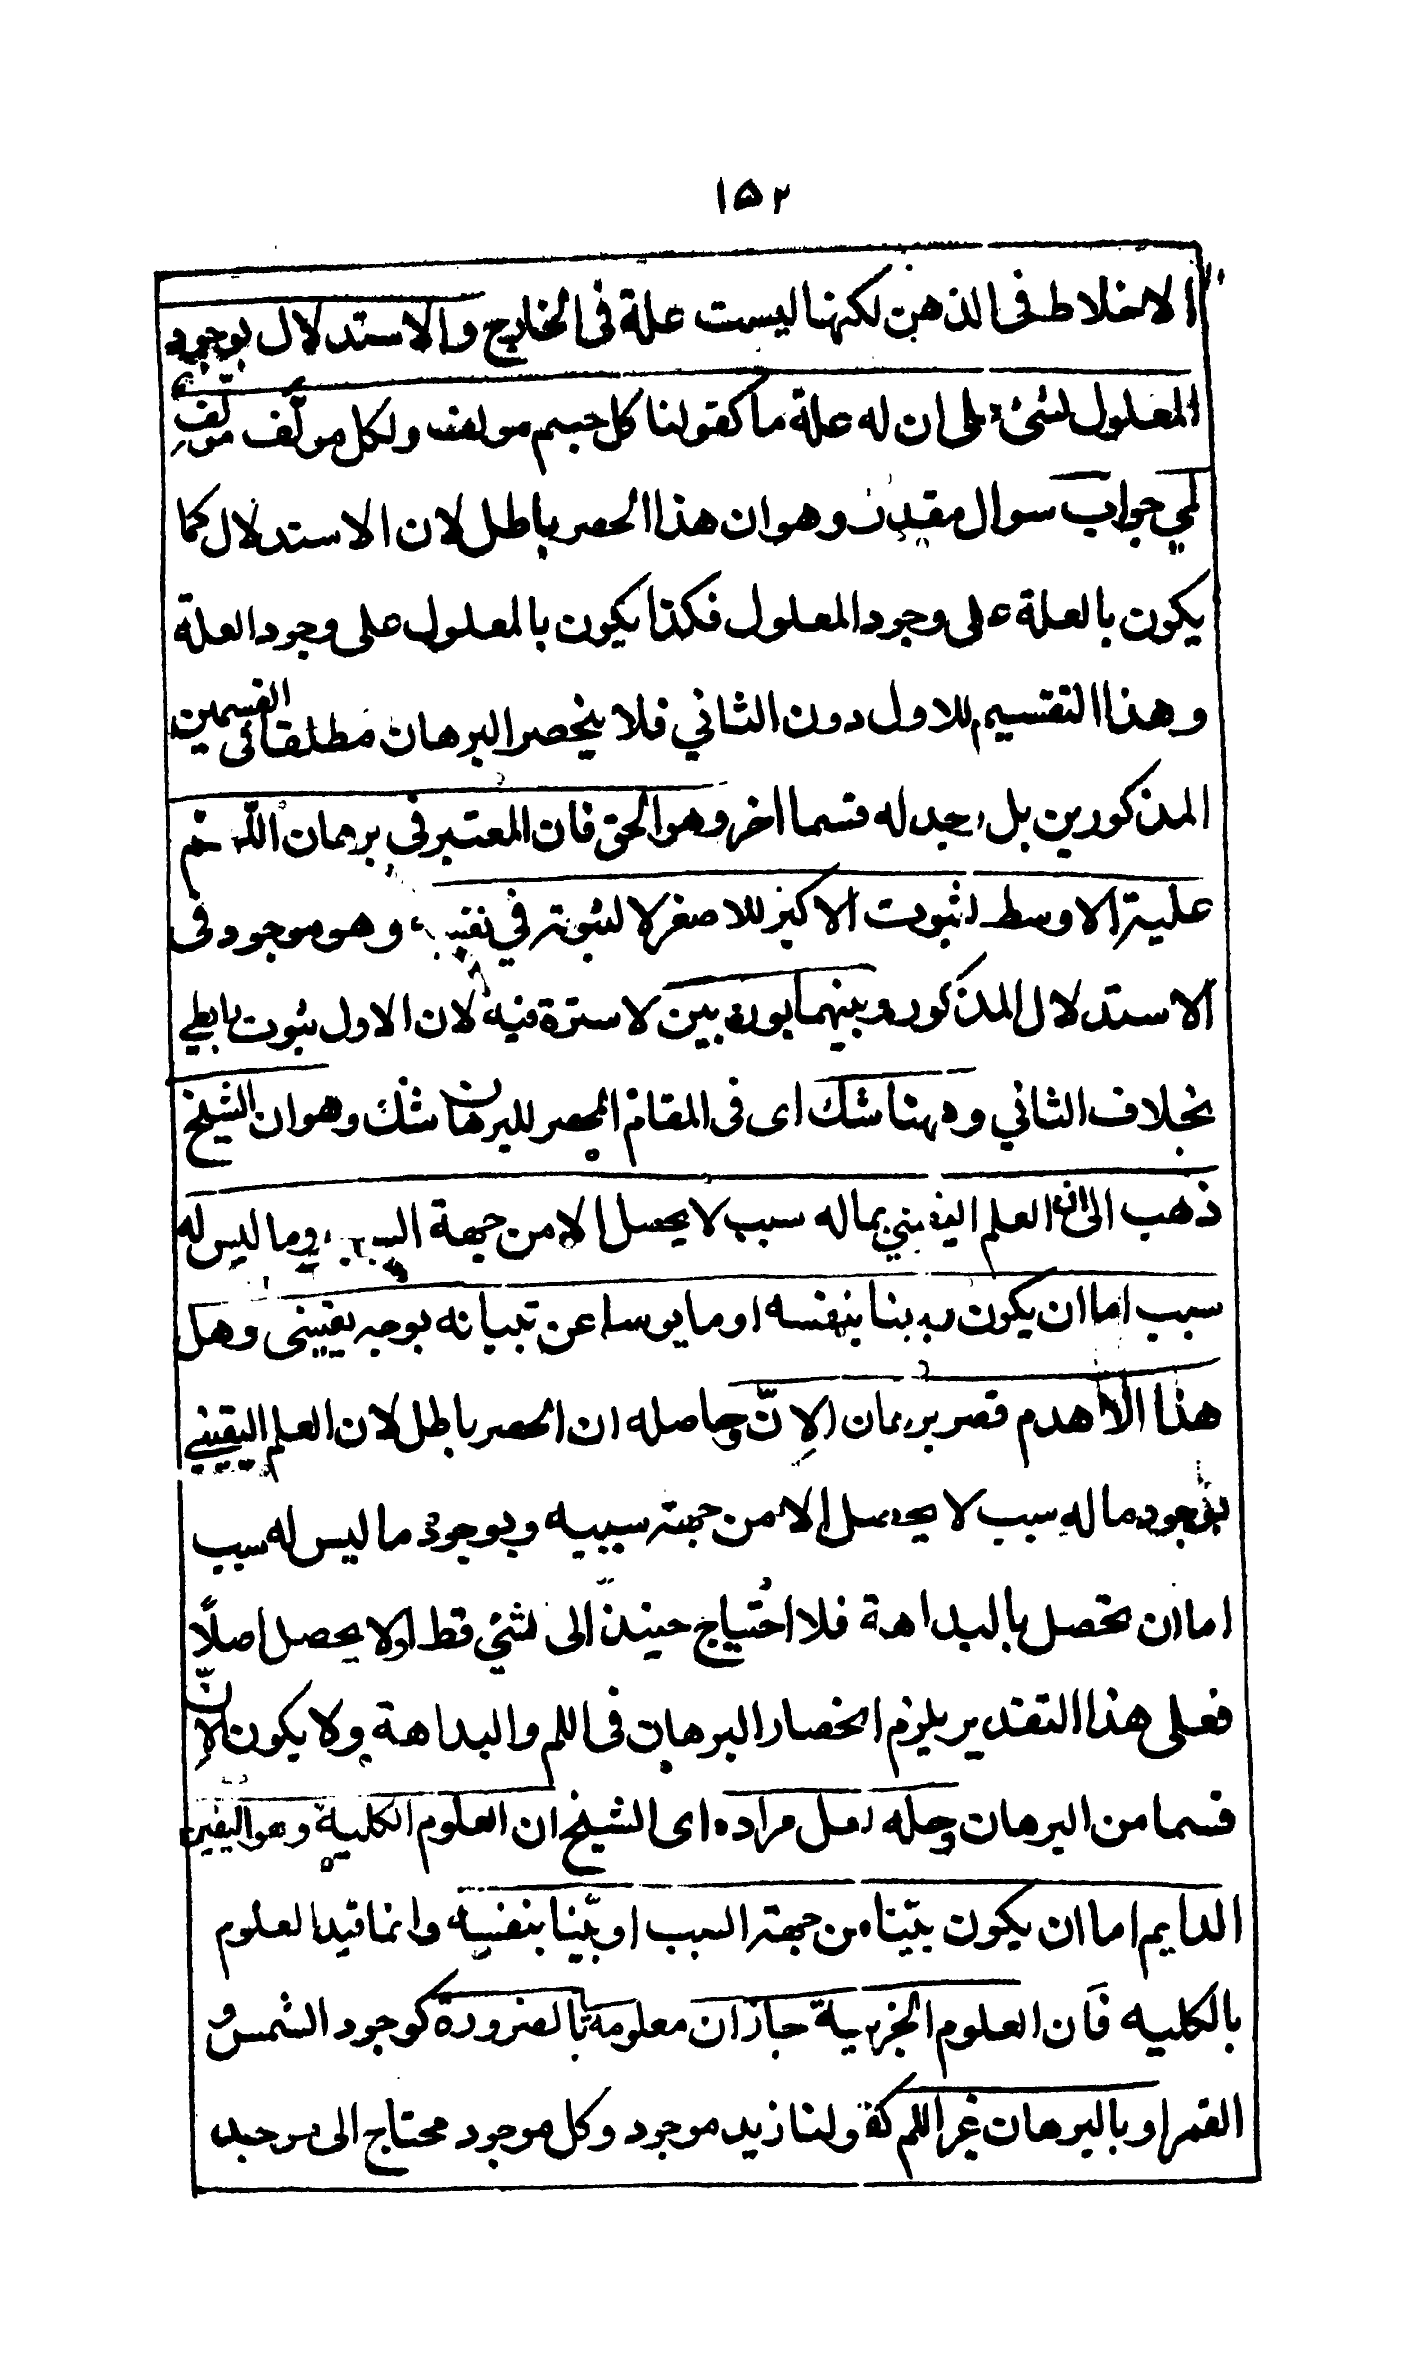 ١٥٢
الاخلاط فى الذهن لكنها ليست علة فى الخارج والاستدلال بوجود
المعلول لشئ على ان له علة ما كقولنا كل جسم مولف ولكل مولَّف مولِّف
لمي جواب سوال مقدر وهو ان هذا الحصر باطل لان الاستدلال كما
يكون بالعلة على وجود المعلول فكذا يكون بالمعلول على وجود العلة
وهذا التقسيم للاول دون الثاني فلا ينحصر البرهان مطلقا فى القسمين
المذكورين بل يوجد له قسما اخر وهو الحق فان المعتبر فى برهان اللم
علية الاوسط لثبوت الاكبر للاصغر لا لثبوته في نفسه وهو موجود فى
الاستدلال المذكور وبينهما بون بين لا سترة فيه لان الاول ثبوت رابطي
بخلاف الثاني وههنا شك اى فى المقام الحصر للبرهان شك وهو ان الشيخ
ذهب الى ان العلم اليقيني بماله سبب لا يحصل الا من جهة السبب وما ليس له
سبب اما ان يكون بينا بنفسه او مايوسا عن تبيانه بوجه يقينى وهل
هذا الا هدم قصر برهان الإنّ وحاصله ان الحصر باطل لان العلم اليقيني
بوجود ما له سبب لا يحصل الا من جهته سببيه وبوجود ما ليس له سبب
اما ان تحصل بالبداهة فلا احتياج حينئذ الى شئ قط او لا يحصل اصلًا
فعلى هذا التقدير يلزم انحصار البرهان فى اللم والبداهة ولا يكون الإنّ
قسما من البرهان وحله لعل مراده اى الشيخ ان العلوم الكلية وهو اليقين
الدايم اما ان يكون بيّنا من جهته السبب او بيّنا بنفسه وانما قيد العلوم
بالكليه فان العلوم الجزئية جاز ان معلومة بالضرورة كوجود الشمس و
القمر او بالبرهان غير اللم كقولنا زيد موجود وكل موجود محتاج الى موجد